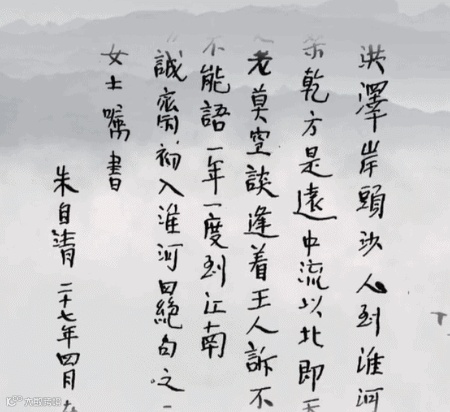 洪澤岸頭沙人到淮河
桑乾方是遠中流以北即天
老莫空談逢着王人訴不
不能語一年一度到江南
誠齋初入淮河四絕句之
女士嘱書
朱自清二十七年四月